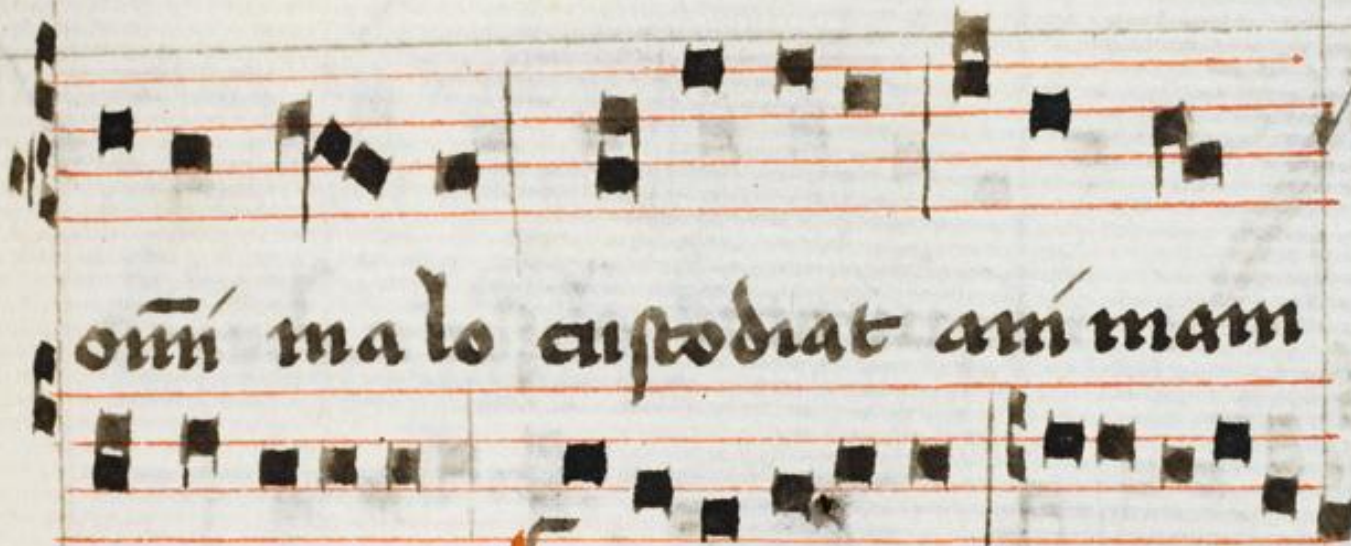 om̅i malo custodiat animam